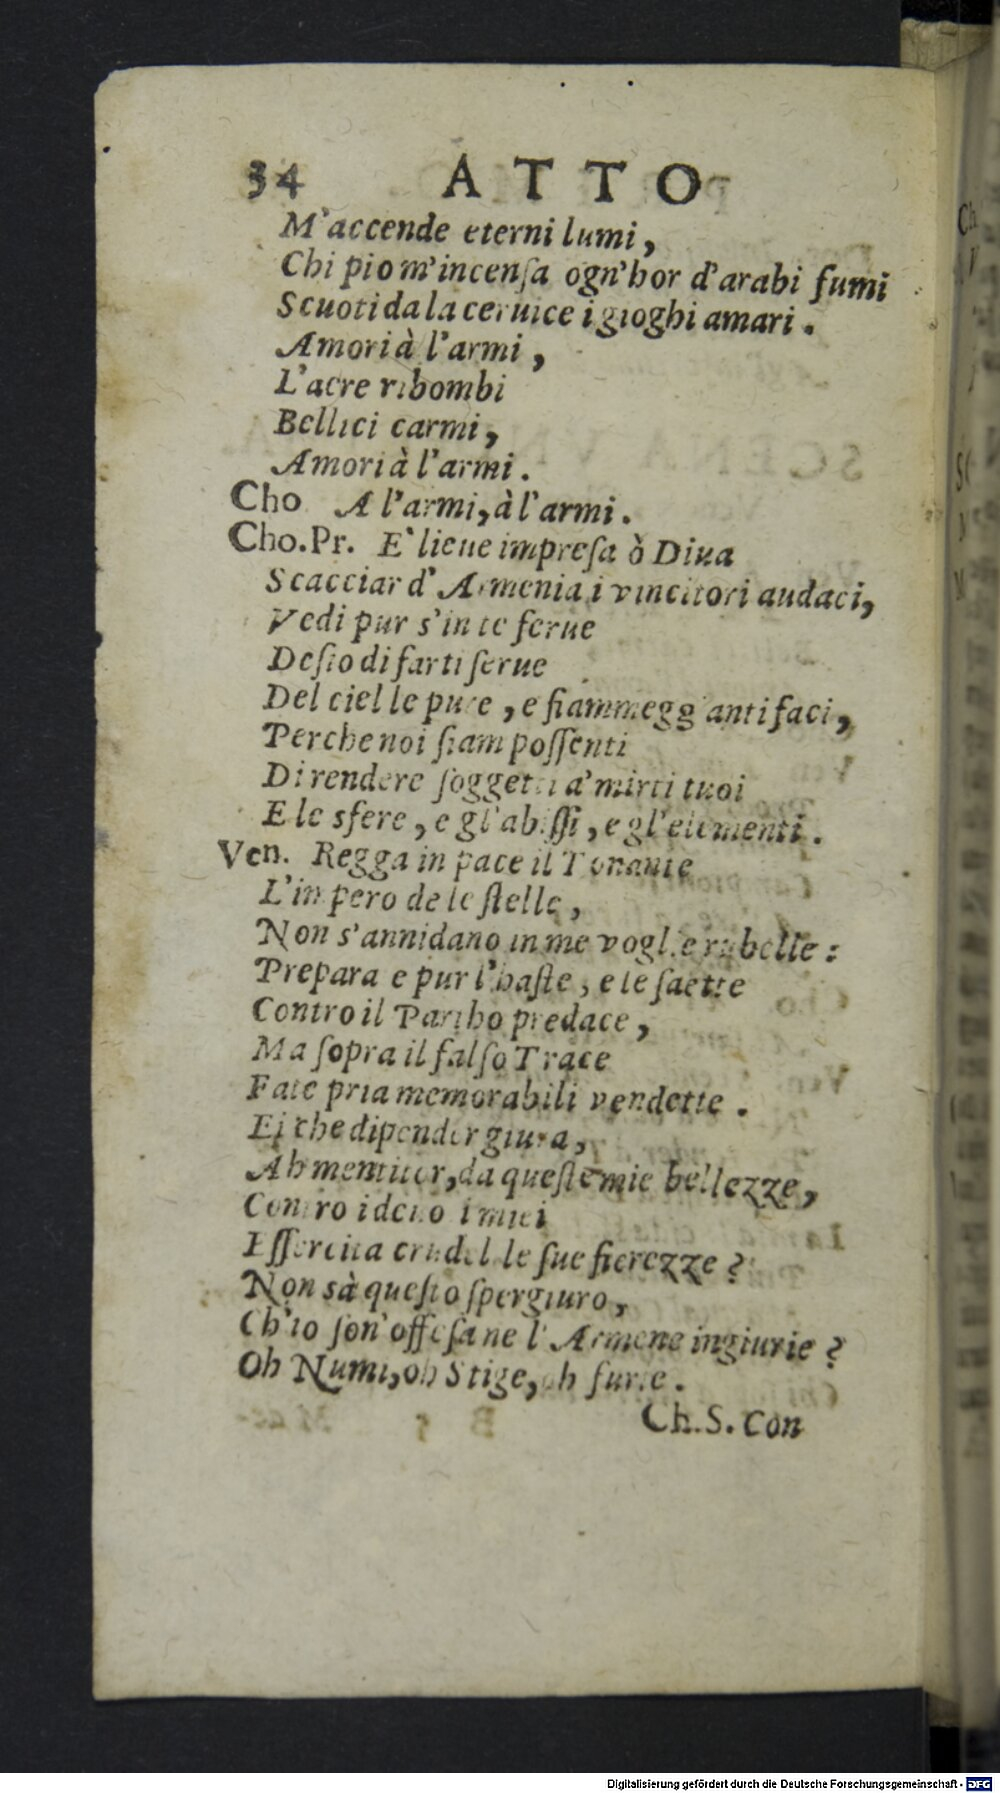 34 ATTO
M'accende eterni lumi,
Chi pio m'incenſa ogn'hor d'arabi fumi
Scuoti da la ceruice i gioghi amari.
Amori à l'armi,
L'aere ribombi
Bellici carmi,
Amori à l'armi.
Cho A l'armi, à l'armi.
Cho.Pr. E' lieue impreſa ò Diua
Scacciar d'Armenia i vincitori audaci,
Vedi pur s'in te ferue
Deſio di farti ſerue
Del ciel le pure, e fiammeggianti faci,
Perche noi ſiam poſſenti
Di rendere ſoggetti a' mirti tuoi
E le sfere, e gl'abiſſi, e gl'elementi.
Ven. Regga in pace il Tonante
L'impero de le ſtelle,
Non s'annidano in me voglie rubelle:
Prepara e pur l'haſte, e le ſaette
Contro il Partho predace,
Ma ſopra il falſo Trace
Fate pria memorabili vendette.
Ei che dipender giura,
Ah mentitor, da queſte mie bellezze,
Contro i deuoti miei
Eſſercita crudel le ſue fierezze?
Non sà queſto ſpergiuro,
Ch'io ſon' offeſa ne l'Armene ingiurie?
Oh Numi, oh Stige, oh furie.
Ch.S. Con
Digitalisierung gefördert durch die Deutsche Forschungsgemeinschaft - DFG